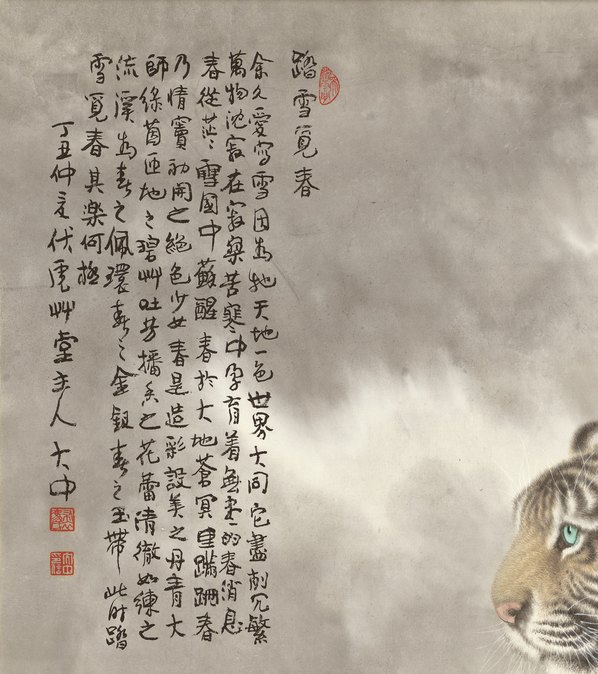 踏雪覓春
余久愛寫雪因為牠天地一色世界大同它盡削冗繁
萬物沈寂在寂寞苦寒中孕育着無的春消息
春從茫々雪國中蘇醒春於大地蒼冥里蹣跚春
乃情竇初開之絕色少女春是造彩設美之丹青大
師綠茵匝地之碧艸吐芳播香之花蕾清徹如練之
流溪為春之佩環春之金釵春之玉帶此時踏
雪覓春其樂何極
丁丑仲夏伏虎艸堂主人大中